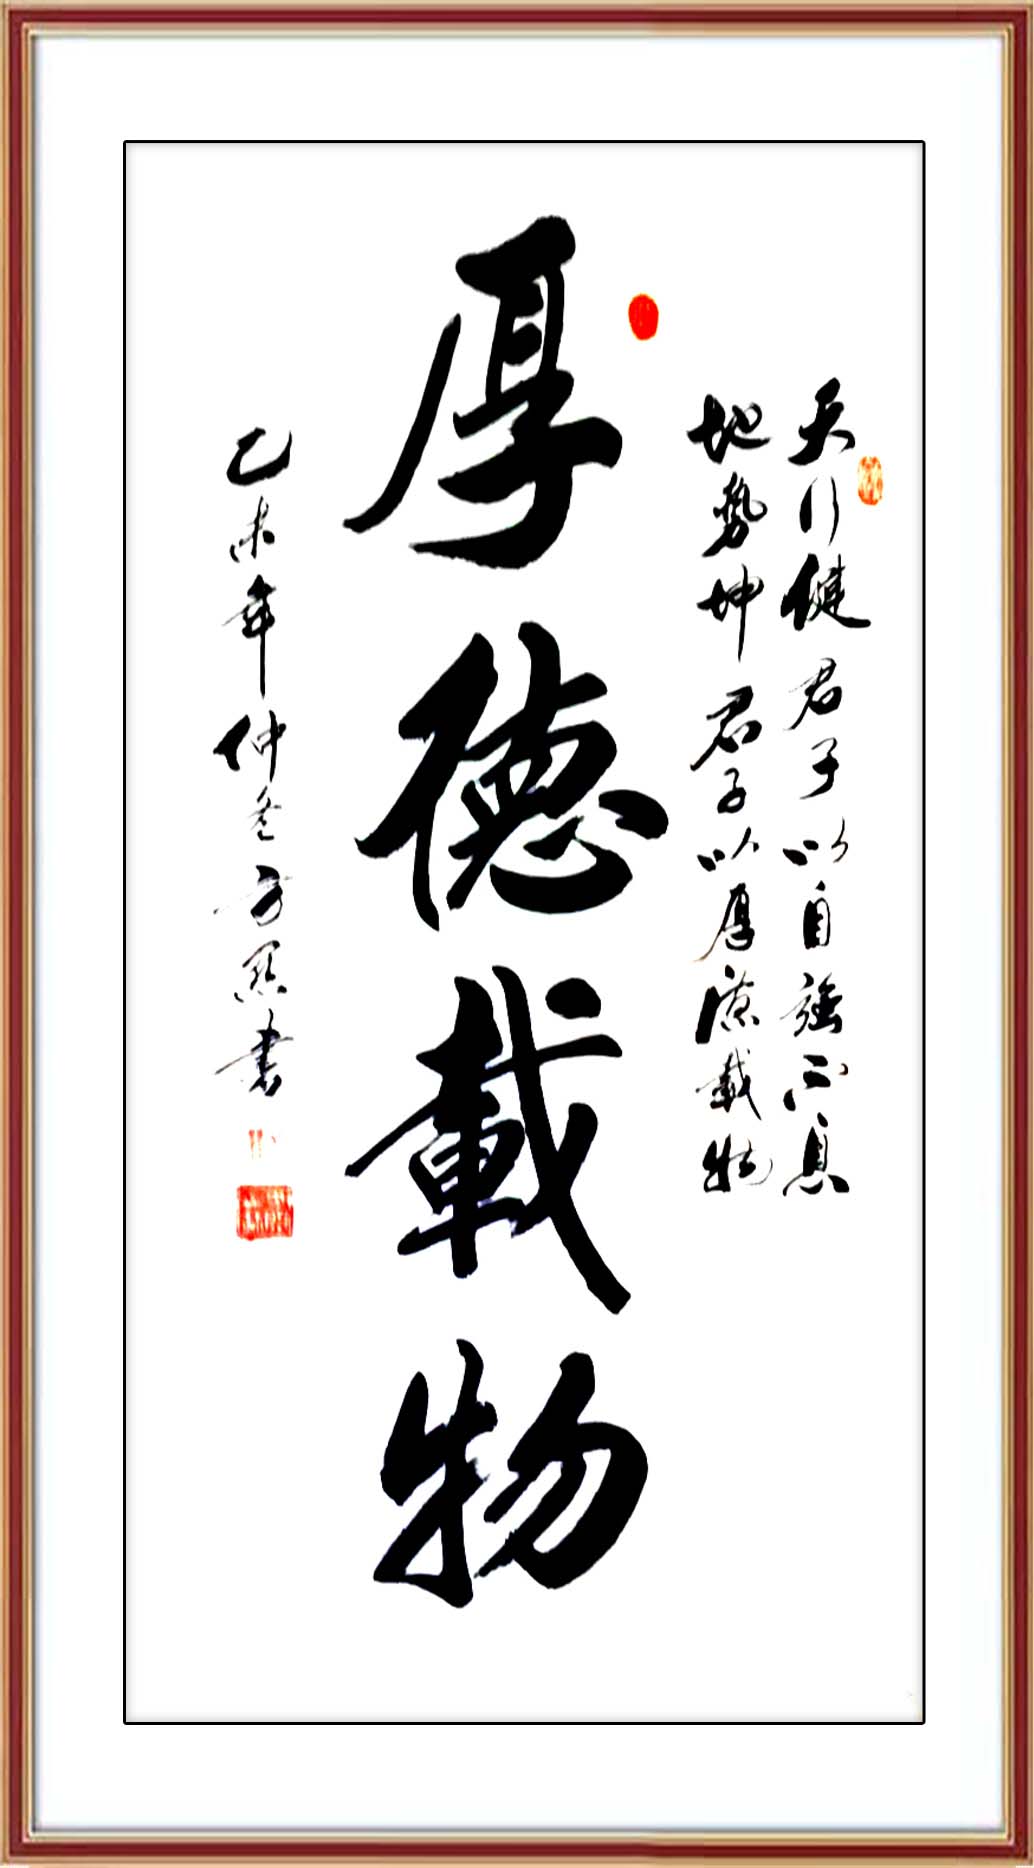 天行健君子以自強不息
地勢坤君子以厚德載物
厚德載物
乙未年仲冬方
書